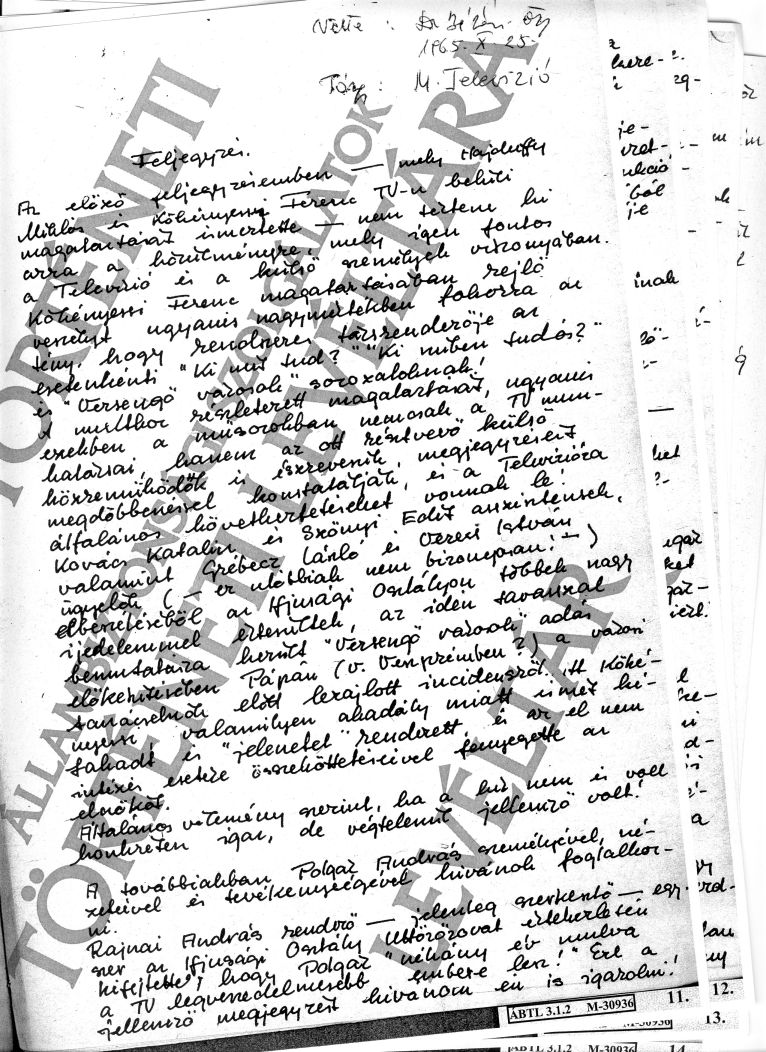 Vette : Dr Bézán Őy
1965. X. 25.
Tárgy : M. Televízió
Feljegyzés.
Az előző feljegyzésemben — mely Hajdufy
Miklós és Kőhényessi Ferenc TV-n belüli
magatartását ismertette — nem tértem ki
arra a körülményre, mely igen fontos
a Televízió és a külső személyek viszonyában.
Kőhényessi Ferenc magatartásában rejlő
veszélyt ugyanis nagymértékben fokozza az
tény, hogy rendszeres társrendezője az
esetenkénti "Ki mit tud?" "Ki miben tudós?"
és "Versengő városok" sorozatoknak!
A multkor részletezett magatartását, ugyanis
ezekben a műsorokban nemcsak a TV mun-
katársai, hanem az ott résztvevő külső
közreműködők is észreveszik, megjegyzéseit
megdöbbenéssel konstatálják, és a Televízióra
általános következtetéseket vonnak le!
Kovács Katalin és Szőnyi Edit asszisztensek,
valamint Grébecz László és Vereci István
ügyelők (— ez utóbbiak nem bizonyosan! —)
elbeszéléséből az Ifjusági Osztályon többek nagy
ijedelemmel értesültek, az idén tavasszal
bemutatásra került "Versengő városok" adás
előkészítésében Pápán (v. Veszprémben?) a városi
tanácselnök előtt lezajlott incidensről. A Kőhé-
nyessi, valamilyen akadály miatt ismét ki-
fakadt és "jelenetet" rendezett, és az el nem
intézés esetére összeköttetéseivel fenyegette az
elnököt.
Általános vélemény szerint, ha a hír nem is volt
konkréten igaz, de végtelenül jellemző volt!
A továbbiakban Polgár András személyével, né-
zeteivel és tevékenységével kívánok foglalkoz-
ni.
Rajnai András rendező — jelenleg szerkesztő — egy-
szer az Ifjusági Osztály Úttörőrovat értekezletén
kifejtette, hogy Polgár "néhány év mulva
a TV legveszedelmesebb embere lesz!" Ezt a
jellemző megjegyzést kívánom én is igazolni!
ÁLLAMBIZTONSÁGI SZOLGÁLATOK
TÖRTÉNETI LEVÉLTÁRA
ÁBTL 3.1.2 M-30936 11. 12.
M-30936 13.
ÁBTL 3.1.2 M-30936 14.